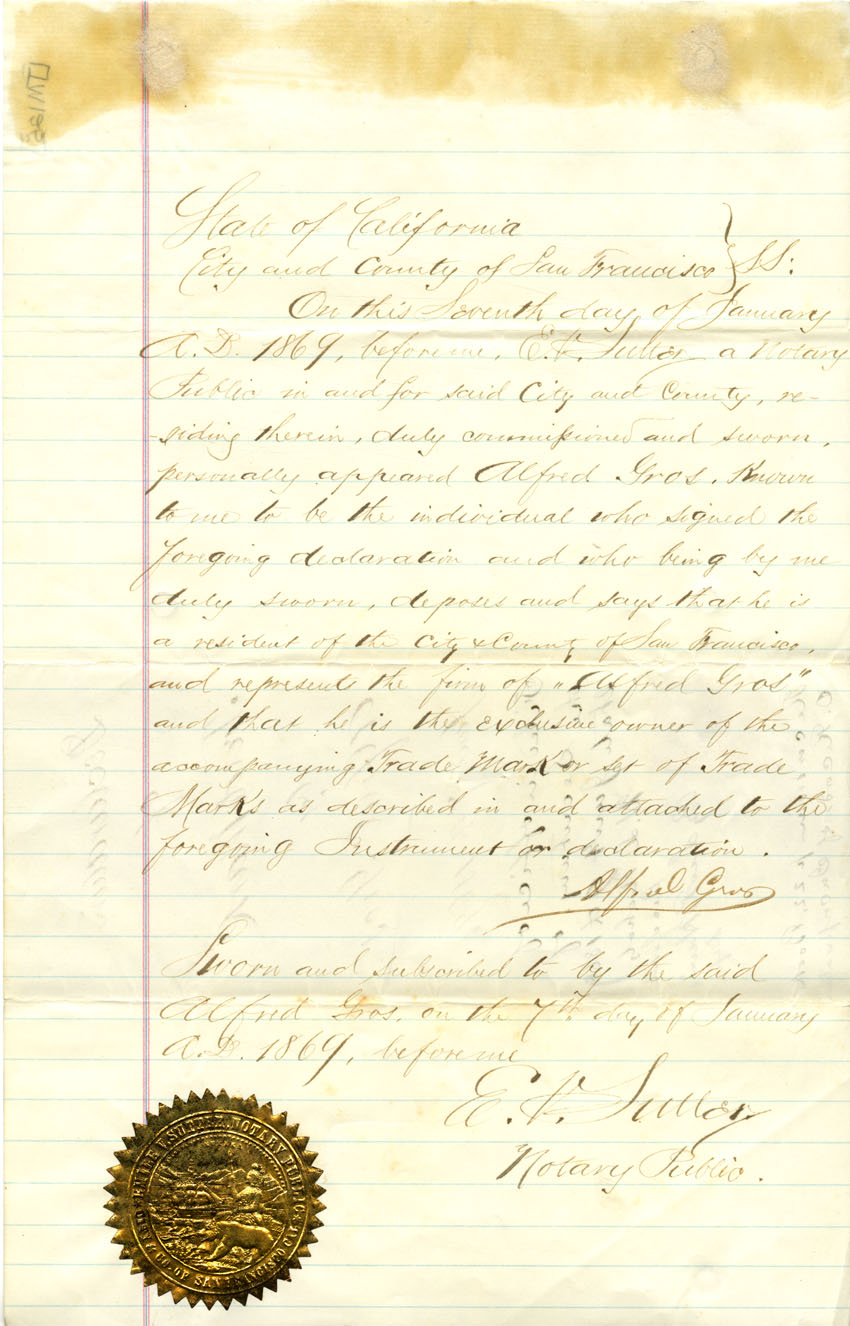 State of California
City and County of San Francisco } SS:
On this Seventh day of January
A.D. 1869, before me, E.V. Sutter, a Notary
Public in and for said City and County, re-
-siding therein, duly commissioned and sworn,
personally appeared Alfred Gros. Known
to me to be the individual who signed the
foregoing declaration and who being by me
duly sworn, deposes and says that he is
a resident of the City & County of San Francisco,
and represents the firm of "Alfred Gros"
and that he is the exclusive owner of the
accompanying Trade Mark or set of Trade
Marks as described in and attached to the
foregoing Instrument or declaration.
Alfred Gros
Sworn and subscribed to by the said
Alfred Gros. on the 7th day of January
A.D. 1869, before me
E. V. Sutter,
Notary Public.
V. SUTTER, NOTARY PUBLIC
CITY & CO. OF SAN FRANCISCO CAL.